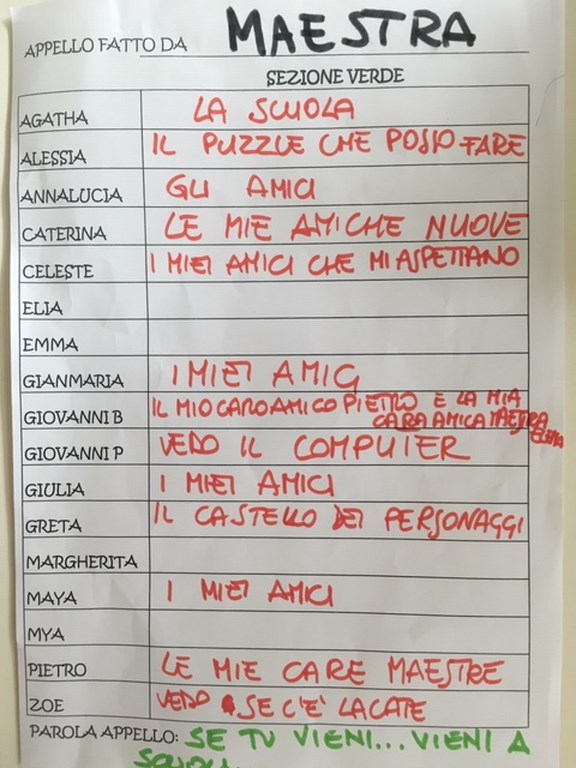 APPELLO FATTO DA MAESTRA
SEZIONE VERDE
AGATHA LA SCUOLA
ALESSIA IL PUZZLE CHE POSSO FARE
ANNALUCIA GLI AMICI
CATERINA LE MIE AMICHE NUOVE
CELESTE I MIEI AMICI CHE MI ASPETTANO
ELIA
EMMA
GIANMARIA I MIEI AMICI
GIOVANNI B IL MIO CARO AMICO PIETRO E LA MIA
CARA AMICA MAESTRA
ELENA
GIOVANNI P VEDO IL COMPUTER
GIULIA I MIEI AMICI
GRETA IL CASTELLO DEI PERSONAGGI
MARGHERITA
MAYA I MIEI AMICI
MYA
PIETRO LE MIE CARE MAESTRE
ZOE VEDO SE C'È LA CATE
PAROLA APPELLO: SE TU VIENI... VIENI A